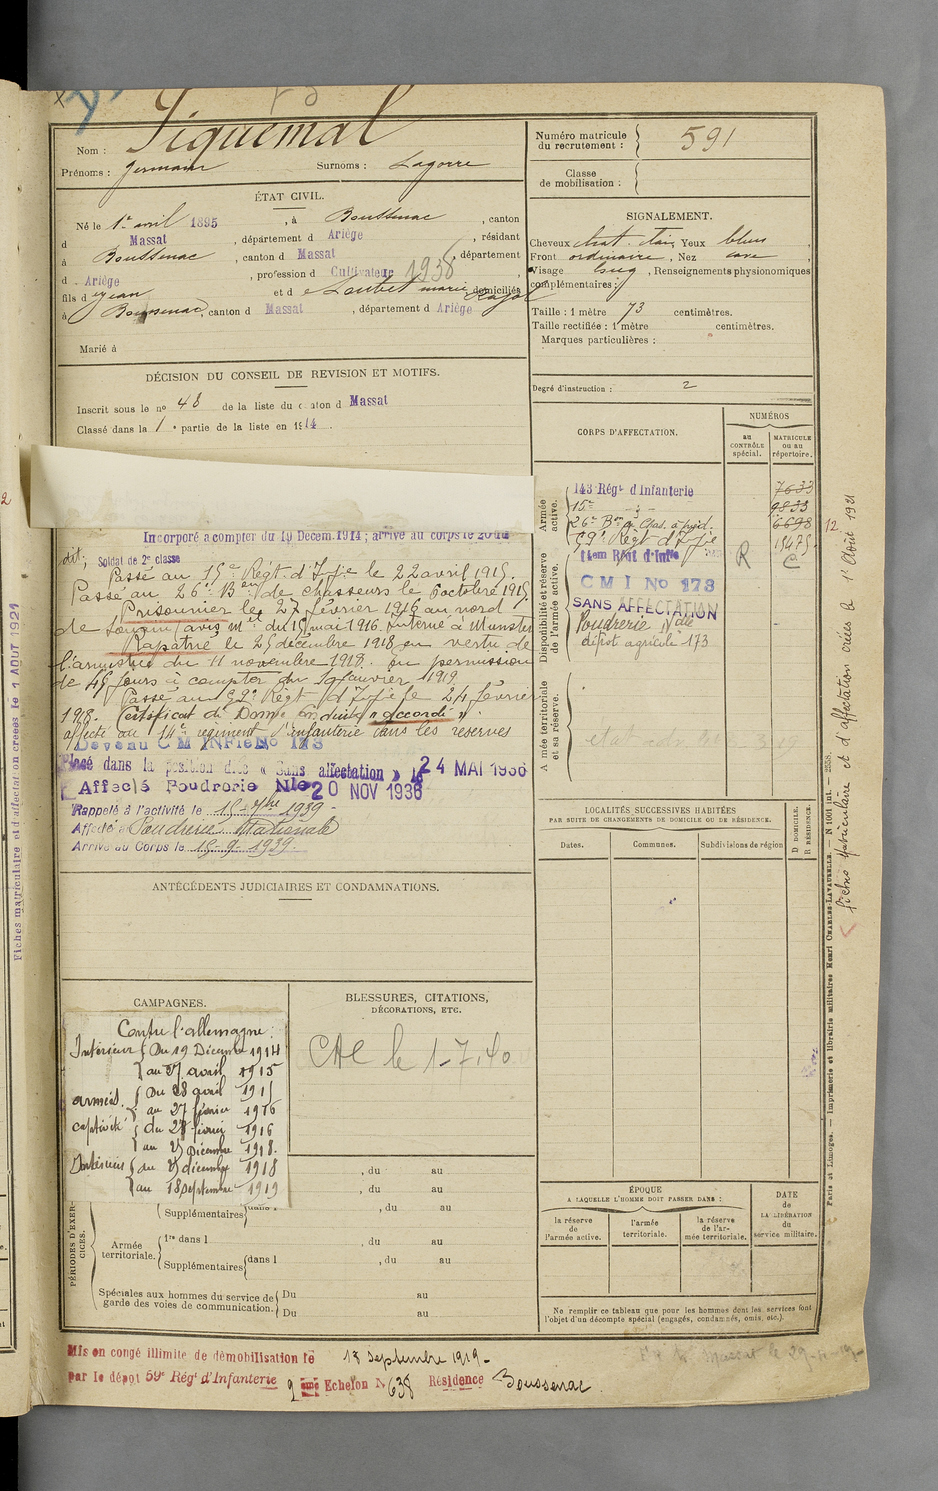 Nom : Piquemal
Prénoms : Germain Surnoms : Lagorre
Numéro matricule du recrutement : 591
Classe de mobilisation :
ÉTAT CIVIL.
Né le 1er avril 1895, à Boussenac, canton
d Massat, département d Ariège, résidant
à Boussenac, canton d Massat, département
d Ariège, profession d Cultivateur 1938
fils d e Jean et d e Loubet marie domiciliés
à Boussenac, canton d Massat, département d Ariège
Marié à
SIGNALEMENT.
Cheveux chat. Yeux bleus,
Front ordinaire, Nez cave,
Visage long, Renseignements physionomiques
complémentaires :
Taille : 1 mètre 73 centimètres.
Taille rectifiée : 1 mètre centimètres.
Marques particulières :
Degré d'instruction : 2
DÉCISION DU CONSEIL DE REVISION ET MOTIFS.
Inscrit sous le no 48 de la liste du canton d Massat
Classé dans la 1e partie de la liste en 1914.
Incorporé a compter du 19 Decem. 1914 ; arrivé au corps le 20 du
dit ; Soldat de 2e classe
Passé au 15e Régt. d'Ifie le 22 avril 1915.
Passé au 26e Bon de chasseurs le 6 octobre 1915
Prisonnier le 27 février 1916 au nord
de (avis du 15 mai 1916. Interné à Munster
Rapatrié le 25 décembre 1918 en vertu de
l'armistice du 11 novembre 1918. En permission
de 45 jours à compter du janvier 1919.
Passé au 59e Régt d'Ifie le 24 février
1918. Certificat de Bonne Conduite "accordé".
affecté au 14e régiment d'infanterie dans les réserves
Devenu C M INFie No 173
Placé dans la position dite « Sans affectation » le 24 MAI 1936
Affecté Poudrerie Nle 20 NOV 1936
Rappelé à l'activité le 15 7bre 1939
Affecté à Poudrerie Nationale
Arrivé au Corps le 15-9-1939.
CORPS D'AFFECTATION.
NUMÉROS
au CONTRÔLE spécial.
MATRICULE ou au répertoire.
Armée active.
143 Régt d'Infanterie 7633
15e - 9833
26e Bon à Chas. à pied. 6698
59e Regt d'Ifie 15475
Disponibilité et réserve de l'armée active.
14em Régt d'Inffie R C
C M I No 173
SANS AFFECTATION
Poudrerie Nale
dépot agricole 173
Armée territoriale et sa réserve.
LOCALITÉS SUCCESSIVES HABITÉES
PAR SUITE DE CHANGEMENTS DE DOMICILE OU DE RÉSIDENCE.
Dates. Communes. Subdivisions de région D DOMICILE. R RÉSIDENCE.
ANTÉCÉDENTS JUDICIAIRES ET CONDAMNATIONS.
CAMPAGNES.
Contre l'allemagne :
Intérieur { Du 19 Décembre 1914
au 27 avril 1915
armées. { Du 28 avril 1915
au 27 février 1916
captivité { du 28 février 1916
au 25 Décembre 1918.
Intérieur { du 25 décembre 1918
au 18 septembre 1919
BLESSURES, CITATIONS,
DÉCORATIONS, ETC.
le 1-7-40
, du au
, du au
Supplémentaires { dans l , du au
PÉRIODES D'EXERCICES.
Armée territoriale.
1re dans l , du au
Supplémentaires { dans l , du au
Spéciales aux hommes du service de garde des voies de communication.
Du au
Du au
ÉPOQUE
A LAQUELLE L'HOMME DOIT PASSER DANS :
la réserve de l'armée active.
l'armée territoriale.
la réserve de l'armée territoriale.
DATE de LA LIBÉRATION du service militaire.
Ne remplir ce tableau que pour les hommes dont les services font
l'objet d'un décompte spécial (engagés, condamnés, omis, etc.).
Mis en congé illimité de démobilisation le 18 septembre 1919
par le dépot 59e Régt d'Infanterie 2 eme Echelon N 638 Résidence Boussenac
Massat le
Fiches matriculaire et d'affectation créées le 1 AOUT 1921
Fiches Matriculaire et d'affectation créées le 1er Août 1921
Paris et Limoges. — Imprimerie et librairie militaires Henri CHARLES-LAVAUZELLE. — N 1001 int. — 2558.